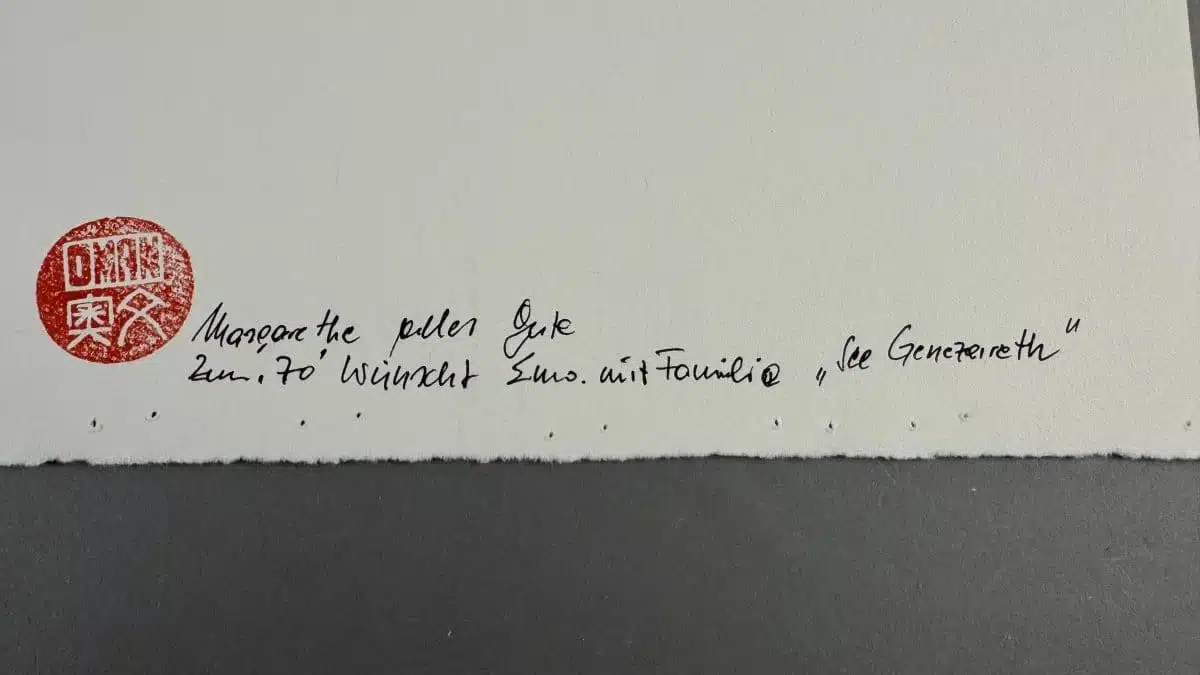 OMAK
奥文
Margarethe alles Gute
Zum "70" wünscht Emo. mit Familie „See Genezareth"